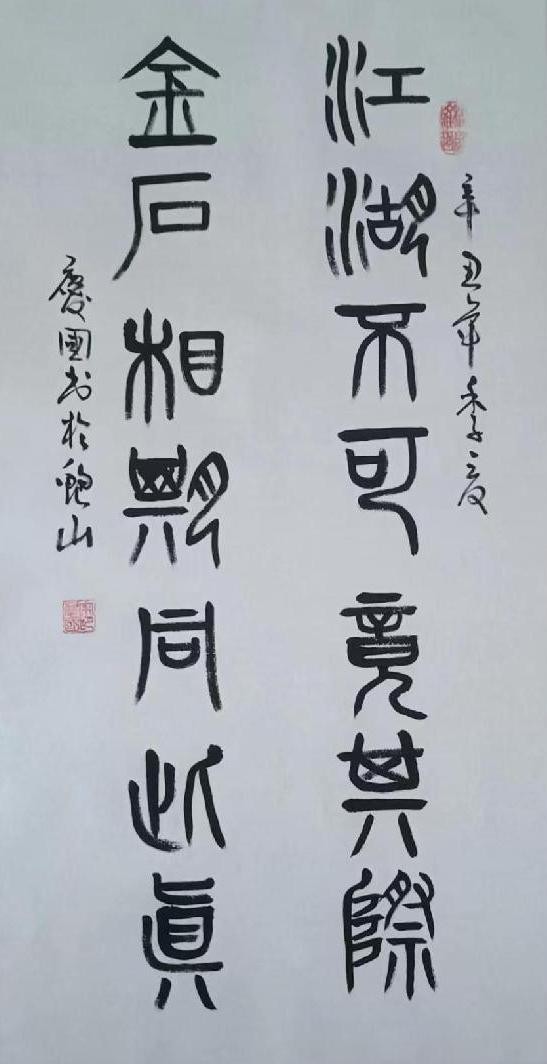 辛丑年季夏
江湖不可竟其際
金石相期同此真
慶國书於鲍山